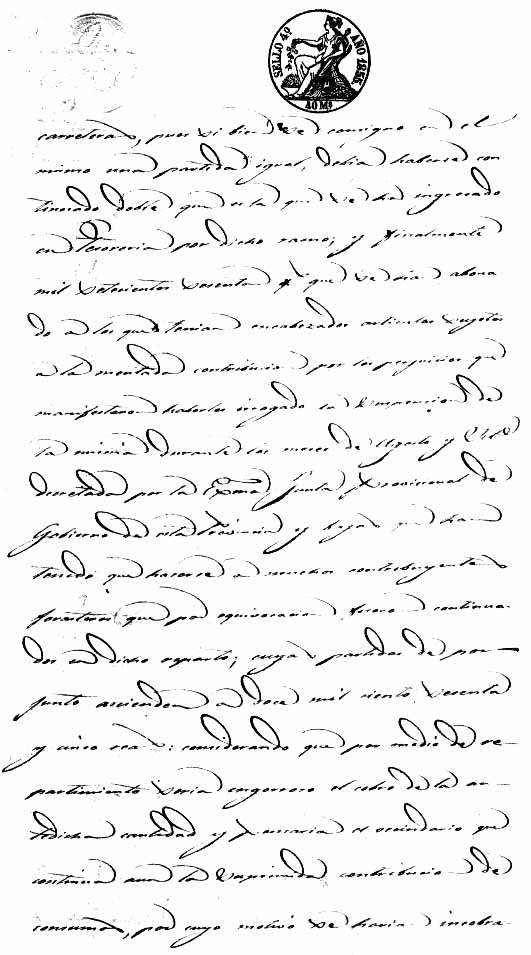 SELLO 4º AÑO 1855
40 Ms
carreteras, pues si bien se consigno en el
mismo una partida igual, debia haberse con
tinuado doble que es la que se ha ingresado
en Tesoreria por dicho ramo; y finalmente
mil setecientos sesenta que se abona
do a los que tenian encabezados articulos sugetos
a la mentada contribucion por los perjuicios que
manifestaron haberles irrogado la suspension de
la misma durante los meses de Agosto y
decretada por la Exma Junta Provisional de
Gobierno de esta Provincia y bajas que han
tenido que hacerse a muchos contribuyentes
forasteros que por equivocacion fueron continua-
dos en dicho reparto; cuyas partidas de por
junto ascienden a doce mil ciento sesenta
y cinco reas: considerando que por medio de re-
partimiento seria engorroso el cobro de la an-
tedicha cantidad y pensaria el vecindario que
continua aun la suprimida contribucion de
consumos, por cuyo motivo se haria incobra-